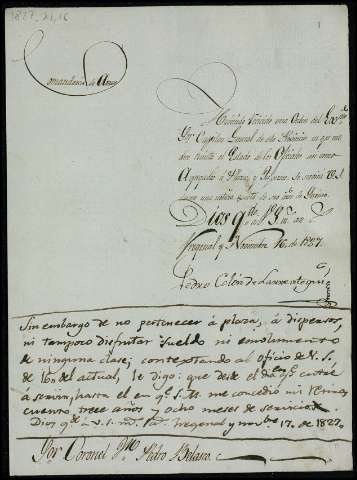 1827, XI, 16
Comandancia de Armas
Habiendo recivido una Orden del Exmo
Sor Capitan General de esta Provincia en que me
dice remita el Estado de los Oficiales sin
Agregados á Plazas, y Dispersos. Se servirá V. S.
una noticia exacta de sus años de Servicio.
Dios gue á V. S. ms. as.
Fregenal y Noviembre 16 de 1827
Pedro Colón de Larreategui
Sin embargo de no pertenecer á plaza, á dispersos,
ni tampoco disfrutar sueldo ni emolumento
de ninguna clase; contextando al oficio de V. S.
de 16 del actual, le digo: que desde el dia qe. entré
á servir, hasta el en qe. S. M. me concedió mi retiro,
cuento trece años y ocho meses de servicio.
Dios gue. á V. S. ms. as. Fregenal y novbre 17. de 1827.
Sor. Coronel Dn. Pedro